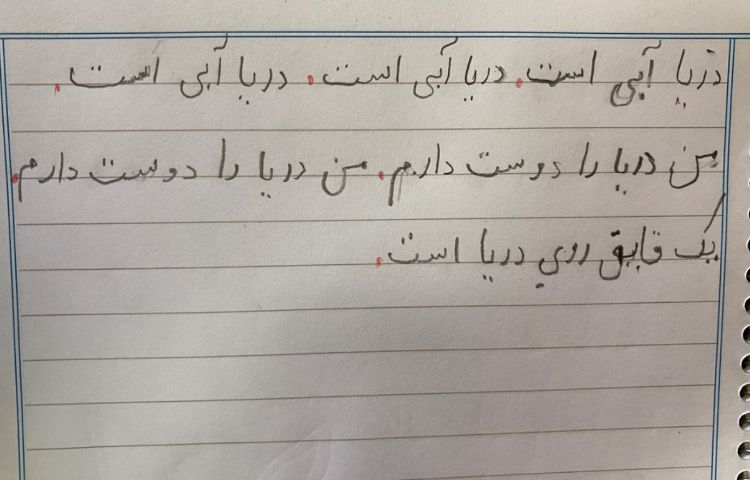 دریا آبی است. دریا آبی است. دریا آبی است.
من دریا را دوست دارم. من دریا را دوست دارم.
یک قایق روی دریا است.